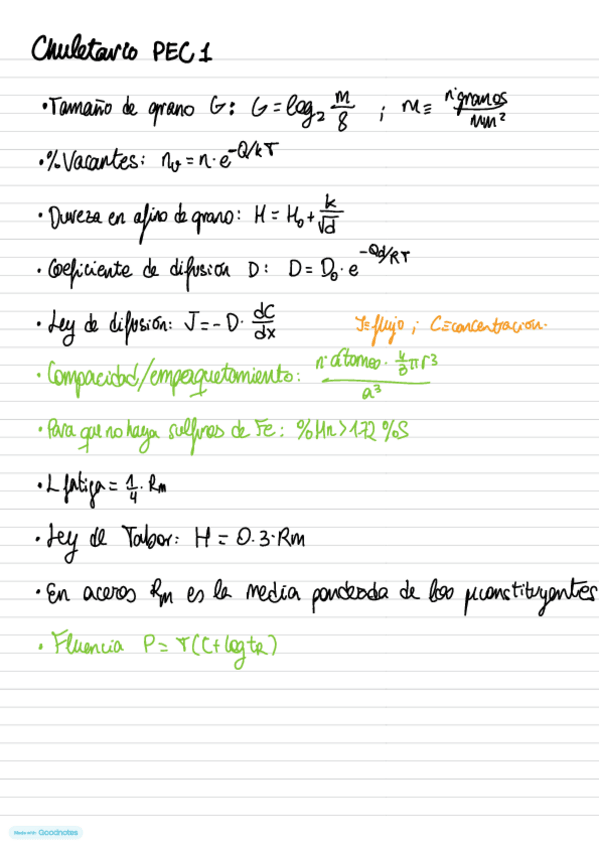 Chuletario PEC 1
• Tamaño de grano G: G = log₂ m/8 ; m ≡ nº granos/mm²
• % Vacantes: nᵥ = n · e^(-Q/kT)
• Dureza en afino de grano: H = H₀ + k/√d
• Coeficiente de difusión D: D = D₀ · e^(-Qd/RT)
• Ley de difusión: J = -D · dC/dx J ≡ flujo ; C ≡ concentración.
• Compacidad/empaquetamiento: nº átomos · 4/3 π r³ / a³
• Para que no haya sulfuros de Fe: % Mn > 1.72 % S
• L fatiga = 1/4 · Rm
• Ley de Tabor: H = 0.3 · Rm
• En aceros Rm es la media ponderada de los μconstituyentes
• Fluencia P = T(C + log tR)
Made with Goodnotes